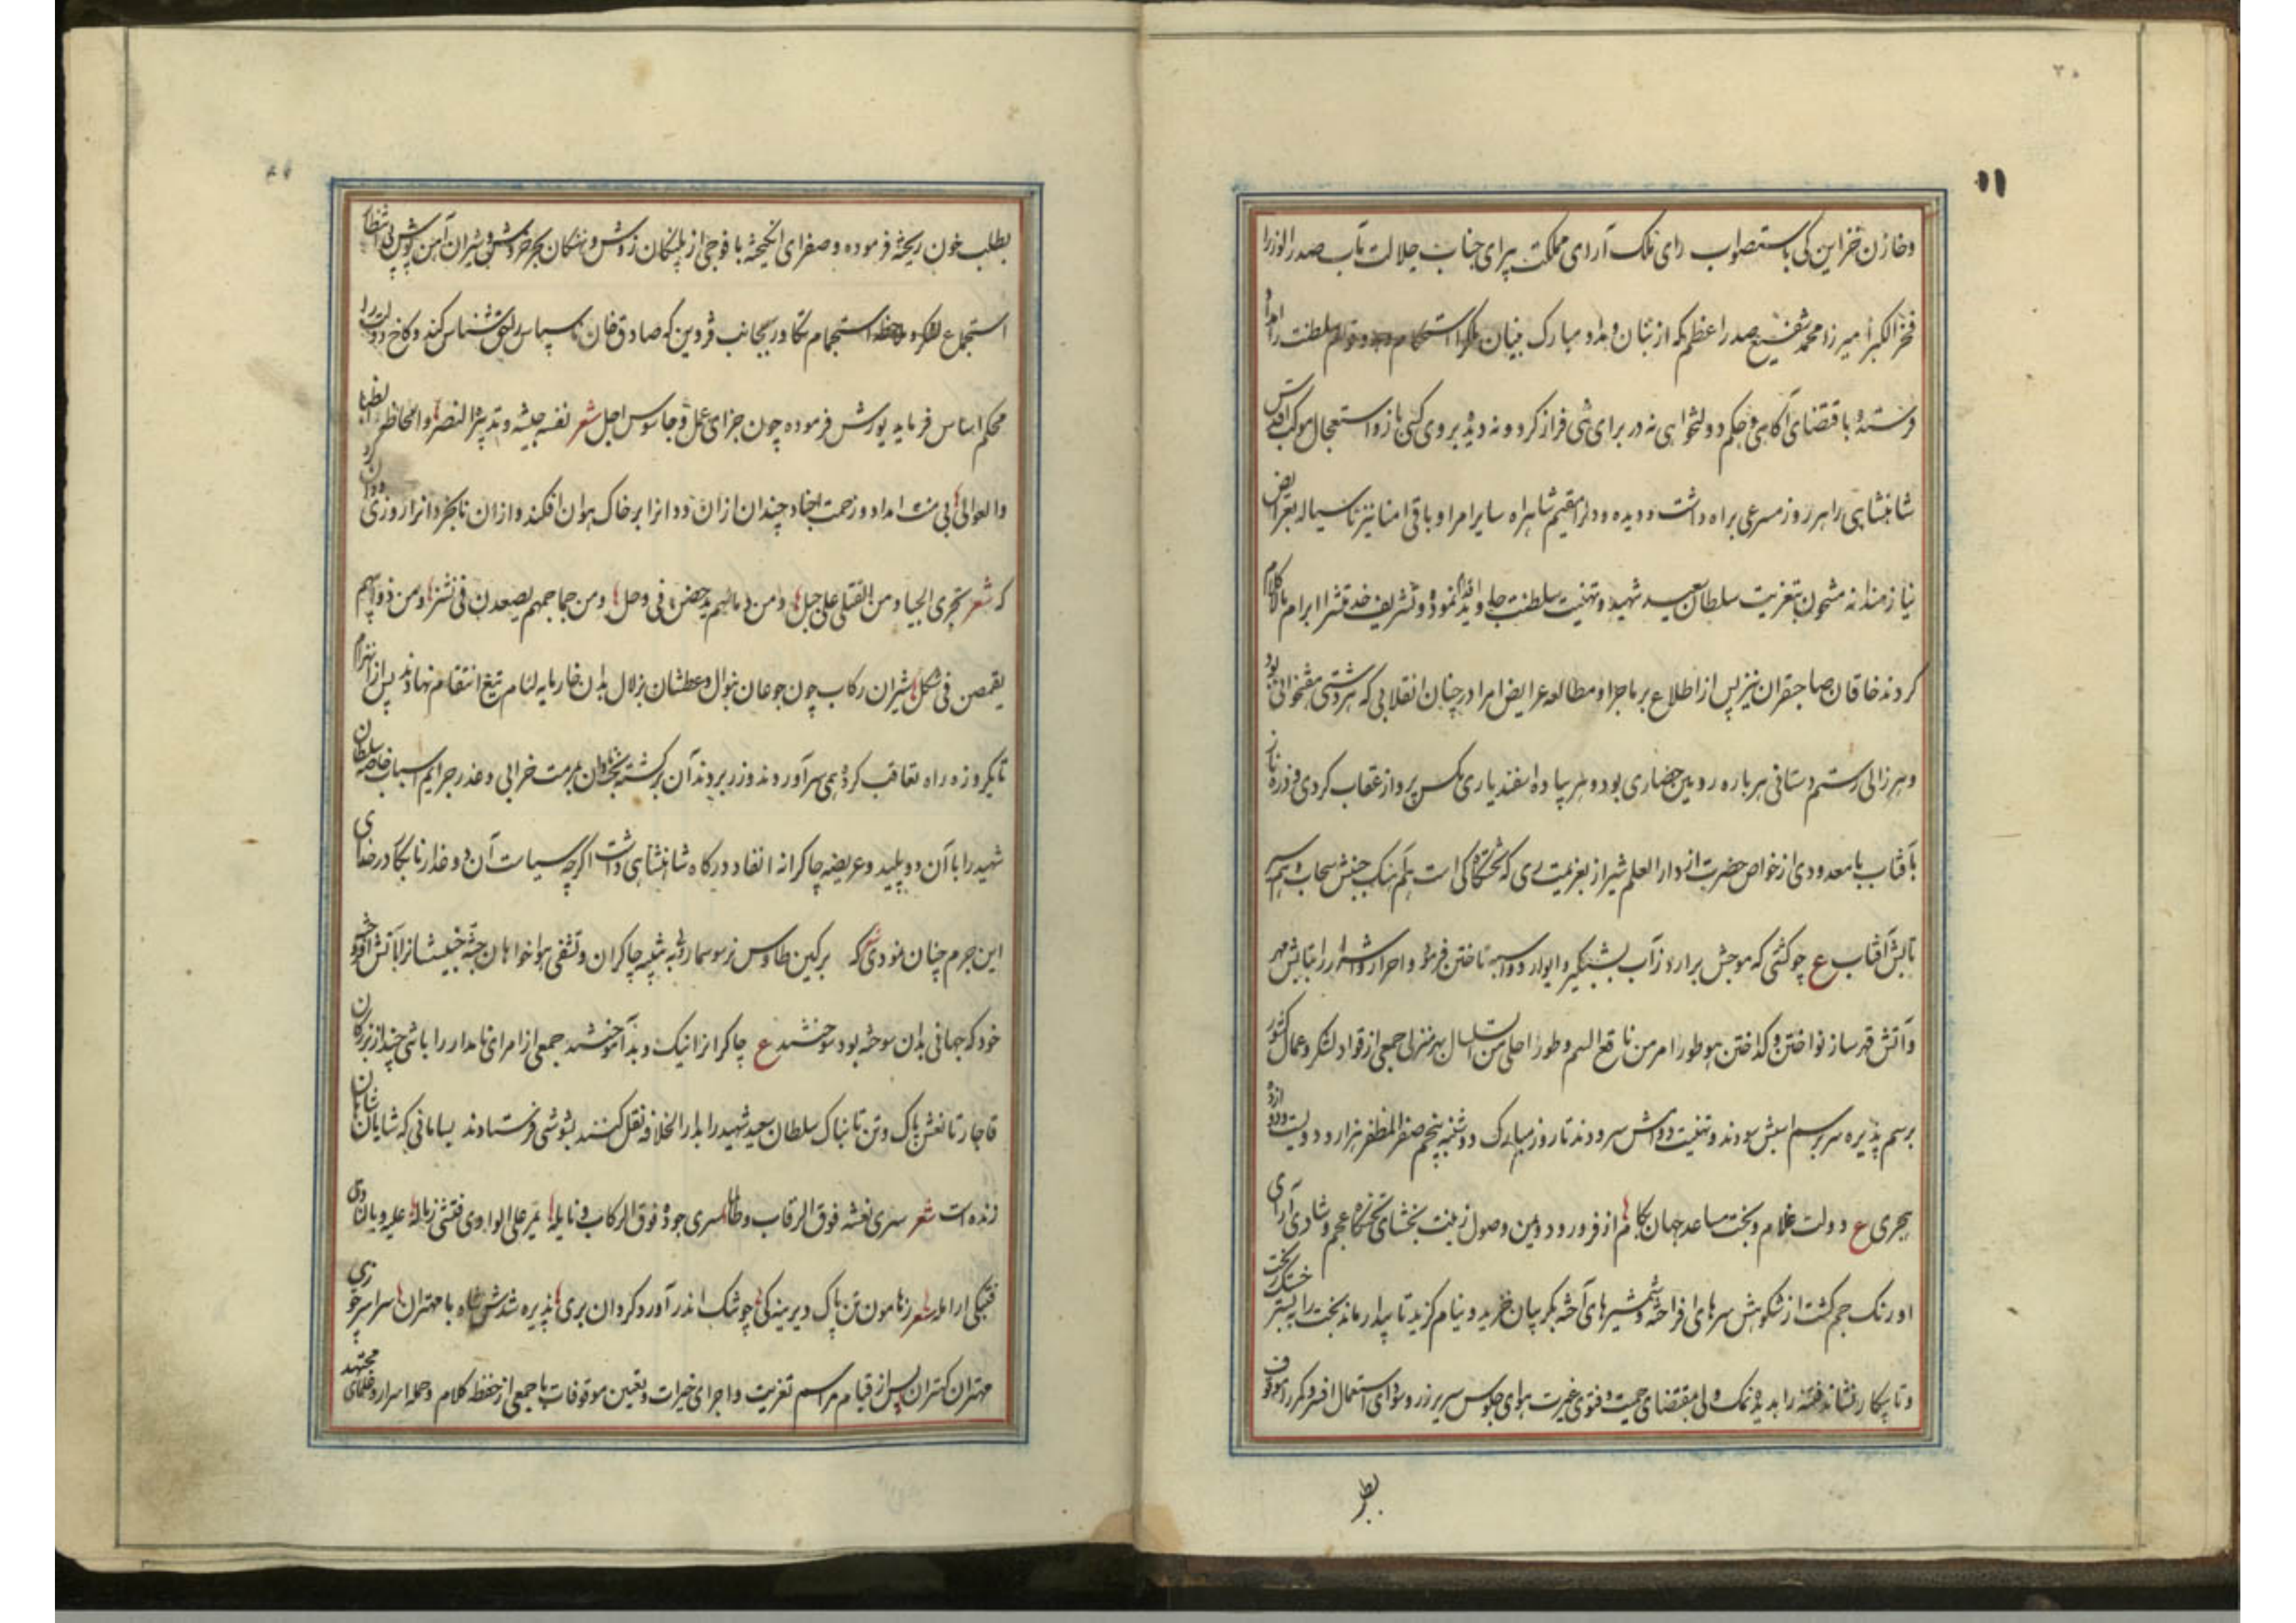 ۲۰
۱۱
وخازن خزاین کی باستصواب رای ملک آرای مملکت پیرای جناب جلالت مآب صدر الوزرا
فخر الکبرا میرزا محمد شفیع صدر اعظم که از بنان و مبارک بنیان ملک استحکام وقوام سلطنت را
فرستده باقتضای آگاهی وحکم دولتخواهی نه در برای شی فراز کرد ونه دیده بروی کسی باز واستعجال موکب اقدس
شاهنشاهی را هر روز مسرعی براه داشت ودیده ودلرا مقیم شاهراه سایر امرا وباقی امنا نیز
نیازمندانه مشحون بتعزیت سلطان سعید شهید وتهنیت سلطنت جاوید نموده وتشریف خدمتش را ابرام تاکام
کردند خاقان صاحبقران نیز پس از اطلاع بر ماجرا ومطالعه عرایض امرا در چنان انقلابی که هر دشتی هفتخوانی بود
وهر زالی رستم دستانی هر باره رویین حصاری بود وهر پیاده اسفندیاری مکس پرواز عقاب کردی وذره ناز
بآفتاب با معدودی از خواص حضرت از دار العلم شیراز بعزیمت ری که تختگاه کی است بآهنگ جنبش سحاب وبسیم
تابش آفتاب ع چو کشتی که موجش برارد ز آب بشبگیر وایوار دواسبه تاختن فرمود واحرار واشرار را بتابش مهر
وآتش قهر ساز نواختن وکداختن هو طورا امر من ناقع السم وطورا احلی من السلسال بهر منزلی جمعی از قواد لشکر وعمال کشور
برسم پذیره سر بر سم اسبش سودند وتهنیت دولتش سرودند تا روز مبارک دوشنبه پنجم صفر المظفر هزار ودویست ودوازده
هجری ع دولت غلام وبخت مساعد جهان بکام از فر ورود ویمن وصول زینت بخشای تختگاه عجم وشادی آرای
اورنگ جم کشت از شکوهش سرهای افراخته وشمشیرهای آخته بگریبان خزید ونیام گزید تا بیدار ماند بخت را به بستر خسک ریخت
وتا بیکار نشاند فتنه را بدیده نمک ولی بمقتضای حمیت وفتوی غیرت هوای جلوس سریر زر وسودای استعمال افسر وکمر را موقوف
بطلب خون ریخته فرموده وصفرای انگیخته با فوجی از پلنگان زوش ونهنگان بحر خروش وشیران آهن پوش بی انتظار
استجماع لشکر و استجمام تکاور بجانب قزوین که صادق خان ناسپاس را حق شناس کند وکاخ دولت را
محکم اساس فرماید یورش فرموده چون جزای عمل وجاسوس اجل شعر نفسه جیشه وتدبیره النصر والحاظه الظبا
والعوالی بی منت امداد وزحمت اجناد چندان ازان ددانرا بر خاک هوان افکند وازان نابخردانرا روز
که شعر تجری الجیاد من القتلی علی جبل ومن دمائهم یدحضن فی وحل ومن جماجمهم یصعدن فی نشز ومن ذوائبهم
یقمصن فی شکل شیران رکاب چون جوعان بنوال وعطشان بزلال بدان خاربایه لئام تیغ انتقام نهادند پس از انهزام
تا یکروزه راه تعاقب کرده همی سر آوردند وزر بردند آن برگشته بخت نادان بمرمت خرابی وعذر جرایم اسباب خاصه سلطان
شهید را با آن دو پلید وعریضه چاکرانه انفاد درگاه شاهنشاهی داشت اگرچه سیات آن دو غدار نابکار در خدای
این جرم چنان نمودی که برکین طاوس نر سوسمار ولی به تنبیه چاکران وتشفی هواخواهان جثه خبیثشانرا بآتش افروخته
خود که جهانی بدان سوخته بود سوختند ع چاکرانرا نیک وبد آموختند جمعی از امرای نامدار را باتنی چند از بزرکان
قاجار تا نعش پاک وتن تابناک سلطان سعید شهید را بدار الخلافه نقل کنند بشوشی فرستادند بسامانی که شایان شاهان
زنده است شعر سری نعشه فوق الرقاب وطالما سری جوده فوق الرکاب ونائله یمر علی الوادی فتثنی رماله علیه وبالنادی
فتبکی ارامله شعر ز هامون تن پاک دیرینه کی چو شک اندر آورد کردان بری پذیره شدش شاه با مهتران سراسر چو زی
مهتران کهتران پس از قیام مراسم تعزیت واجرای خیرات وتعین موقوفات با جمعی از حفظه کلام وحمله اسرار وعلمای مجتهد
بطلب